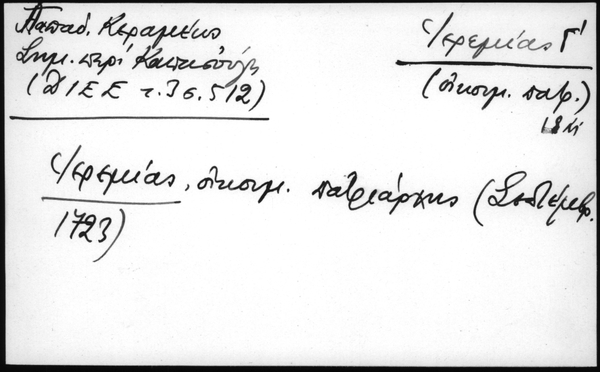 Παπαδ. Κεραμεύς
Σημ. περί
(ΔΙΕΕ τ. 3 σ. 512)
Ἱερεμίας Γ'
(οἰκουμ. πατρ.)
Ἱερεμίας, οἰκουμ. πατριάρχης (Σεπτέμβρ.
1723)